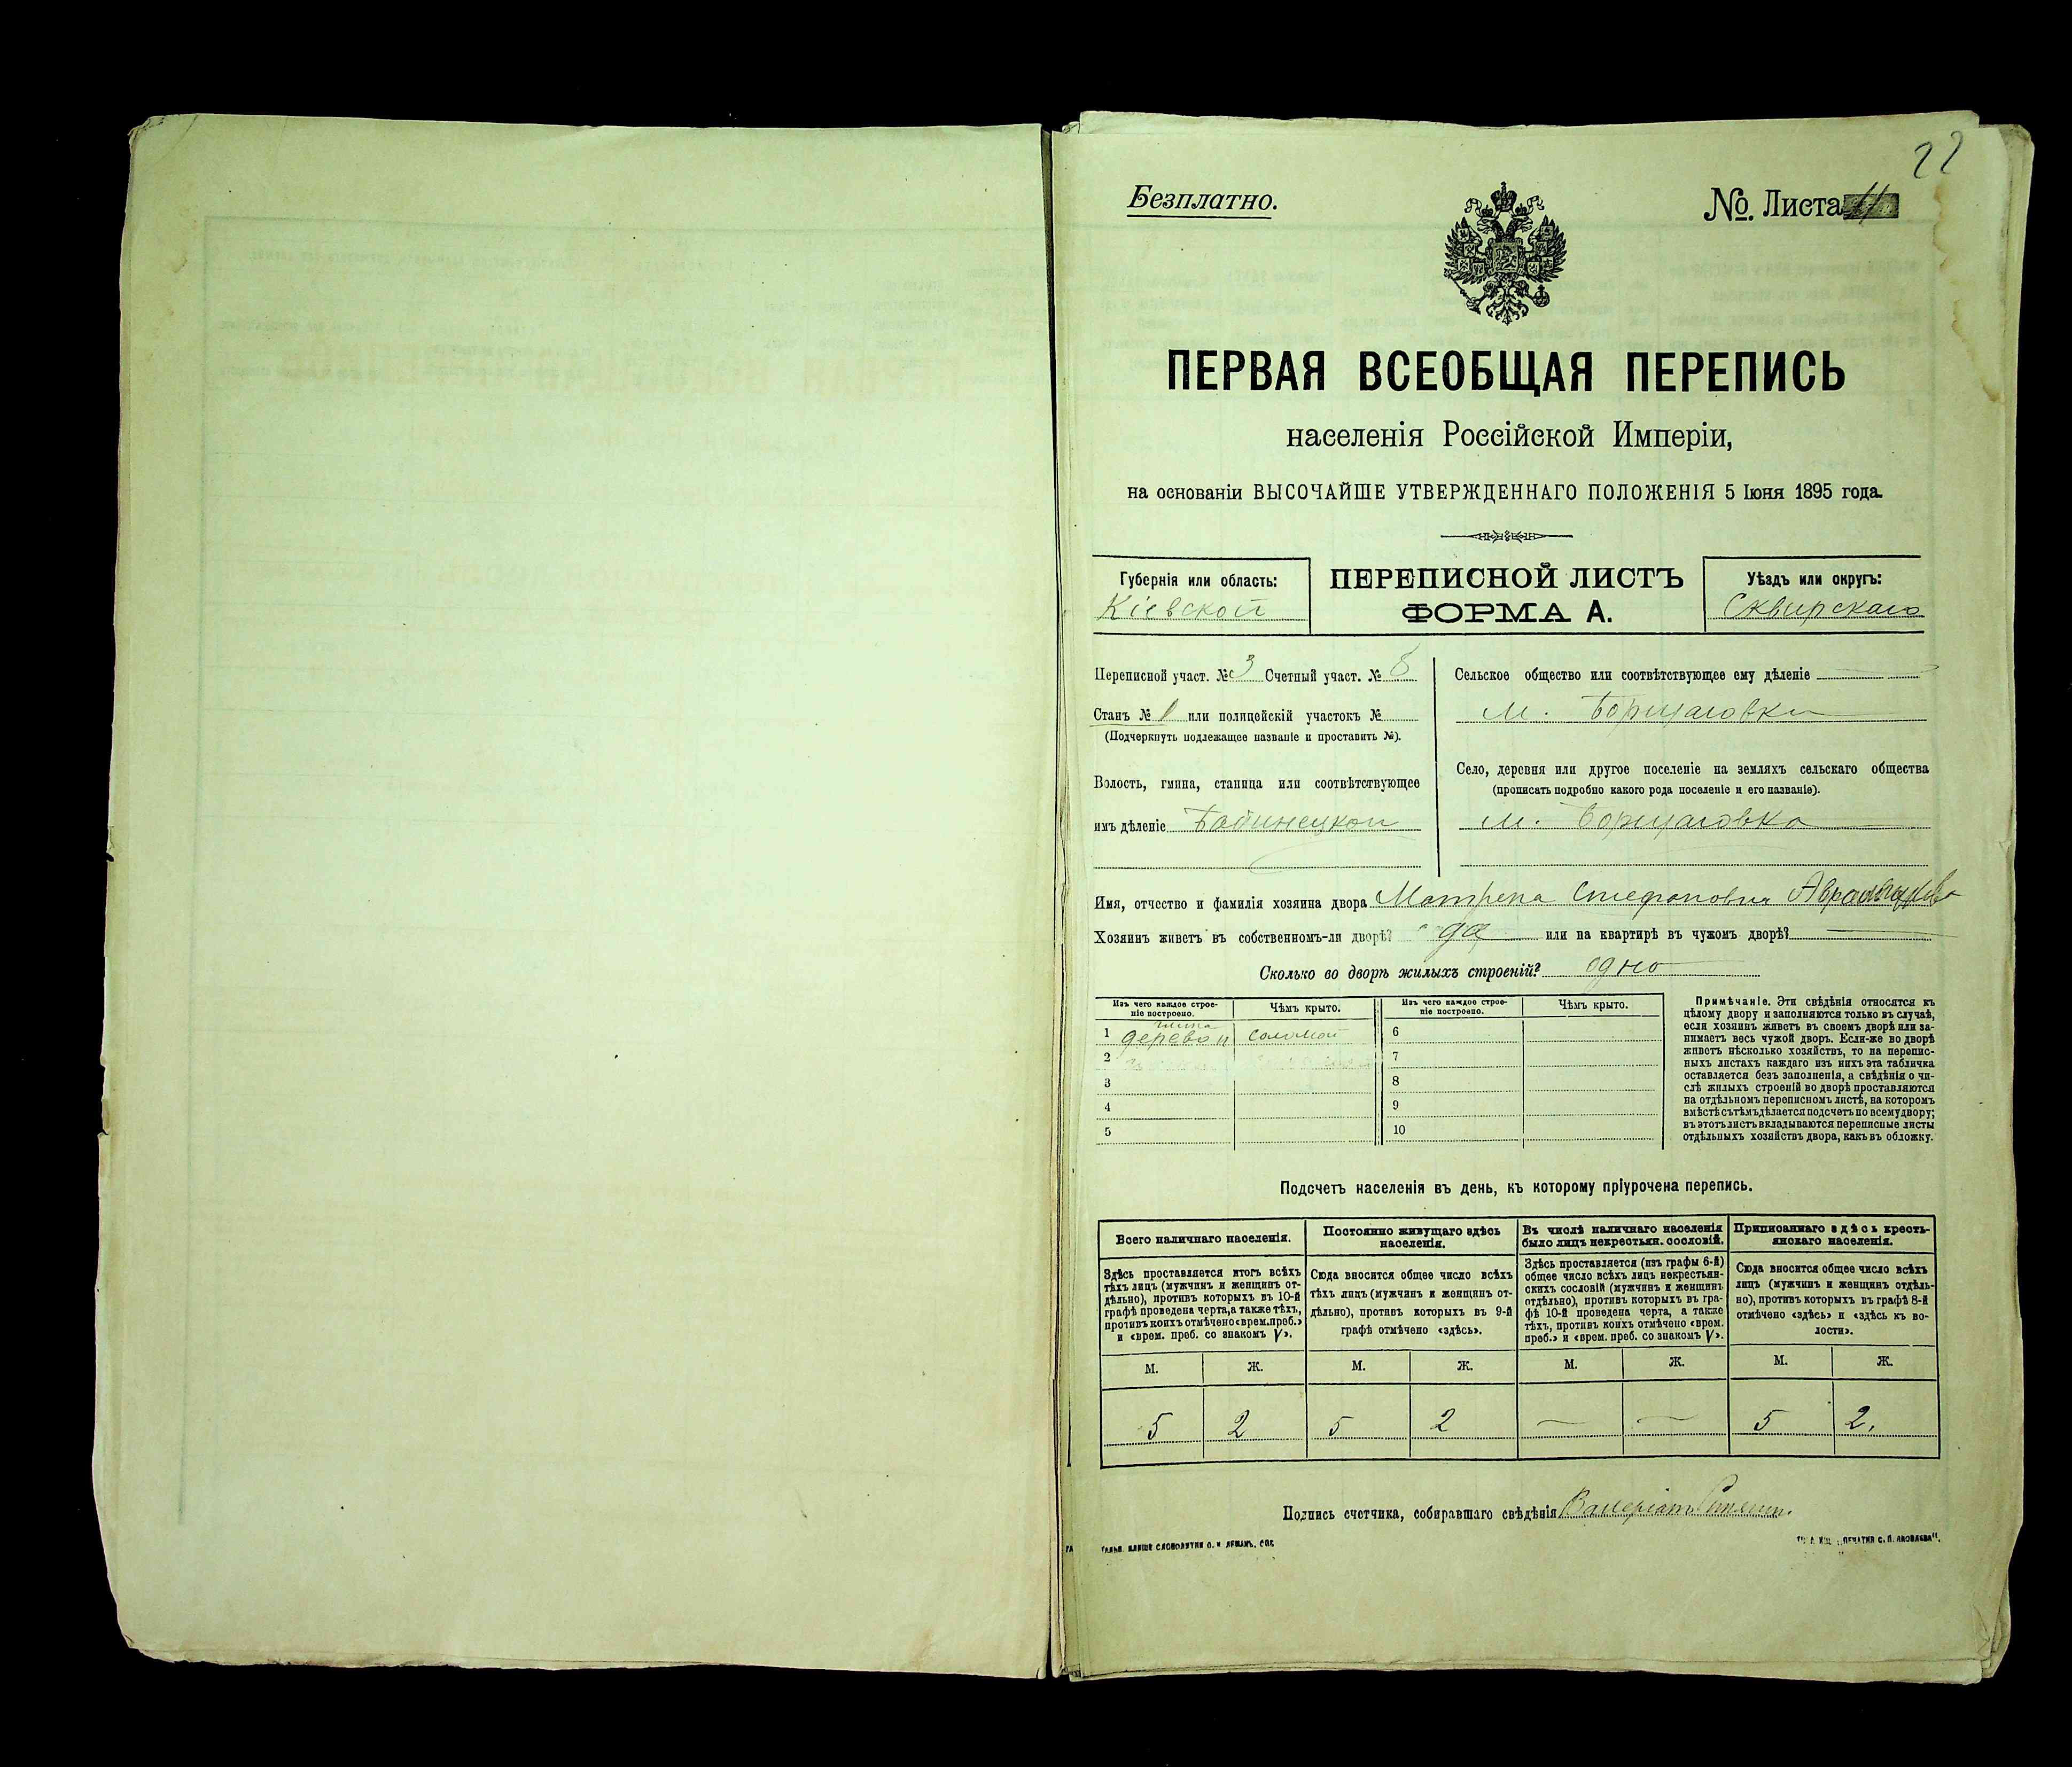 22
Безплатно.
№. Листа 11
ПЕРВАЯ ВСЕОБЩАЯ ПЕРЕПИСЬ
населенія Россійской Имперіи,
на основаніи ВЫСОЧАЙШЕ УТВЕРЖДЕННАГО ПОЛОЖЕНІЯ 5 Іюня 1895 года.
Губернія или область:
Кіевской
ПЕРЕПИСНОЙ ЛИСТЪ
ФОРМА А.
Уѣздъ или округъ:
Сквирскаго
Переписной участ. № 3 Счетный участ. № 8
Станъ № 1 или полицейскій участокъ №
(Подчеркнуть подлежащее названіе и проставить №).
Волость, гмина, станица или соотвѣтствующее
имъ дѣленіе
Сельское общество или соотвѣтствующее ему дѣленіе
м. Борщаговки
Село, деревня или другое поселеніе на земляхъ сельскаго общества
(прописать подробно какого рода поселеніе и его названіе).
м. Борщаговка
Имя, отчество и фамилія хозяина двора Матрена Стефановна
Хозяинъ живетъ въ собственномъ-ли дворѣ? да или на квартирѣ въ чужомъ дворѣ?
Сколько во дворѣ жилыхъ строеній? одно
Изъ чего каждое строе-
ніе построено.
Чѣмъ крыто.
Изъ чего каждое строе-
ніе построено.
Чѣмъ крыто.
1 дерево и глина соломой
2
3
4
5
6
7
8
9
10
Примѣчаніе. Эти свѣдѣнія относятся къ
цѣлому двору и заполняются только въ случаѣ,
если хозяинъ живетъ въ своемъ дворѣ или за-
нимаетъ весь чужой дворъ. Если-же во дворѣ
живетъ нѣсколько хозяйствъ, то на перепис-
ныхъ листахъ каждаго изъ нихъ эта табличка
оставляется безъ заполненія, а свѣдѣнія о чи-
слѣ жилыхъ строеній во дворѣ проставляются
на отдѣльномъ переписномъ листѣ, на которомъ
вмѣстѣ съ тѣмъ дѣлается подсчетъ по всему двору;
въ этотъ листъ вкладываются переписные листы
отдѣльныхъ хозяйствъ двора, какъ въ обложку.
Подсчетъ населенія въ день, къ которому пріурочена перепись.
Всего наличнаго населенія.
Здѣсь проставляется итогъ всѣхъ
тѣхъ лицъ (мужчинъ и женщинъ от-
дѣльно), противъ которыхъ въ 10-й
графѣ проведена черта, а также тѣхъ,
противъ коихъ отмѣчено «врем. преб.»
и «врем. преб. со знакомъ V».
Постоянно живущаго здѣсь
населенія.
Сюда вносится общее число всѣхъ
тѣхъ лицъ (мужчинъ и женщинъ от-
дѣльно), противъ которыхъ въ 9-й
графѣ отмѣчено «здѣсь».
Въ числѣ наличнаго населенія
было лицъ некрестьян. сословій.
Здѣсь проставляется (изъ графы 6-й)
общее число всѣхъ лицъ некрестьян-
скихъ сословій (мужчинъ и женщинъ
отдѣльно), противъ которыхъ въ гра-
фѣ 10-й проведена черта, а также
тѣхъ, противъ коихъ отмѣчено «врем.
преб.» и «врем. преб. со знакомъ V».
Приписаннаго здѣсь кресть-
янскаго населенія.
Сюда вносится общее число всѣхъ
лицъ (мужчинъ и женщинъ отдѣль-
но), противъ которыхъ въ графѣ 8-й
отмѣчено «здѣсь» и «здѣсь къ во-
лости».
М. Ж. М. Ж. М. Ж. М. Ж.
5 2 5 2 — — 5 2.
Подпись счетчика, собиравшаго свѣдѣнія